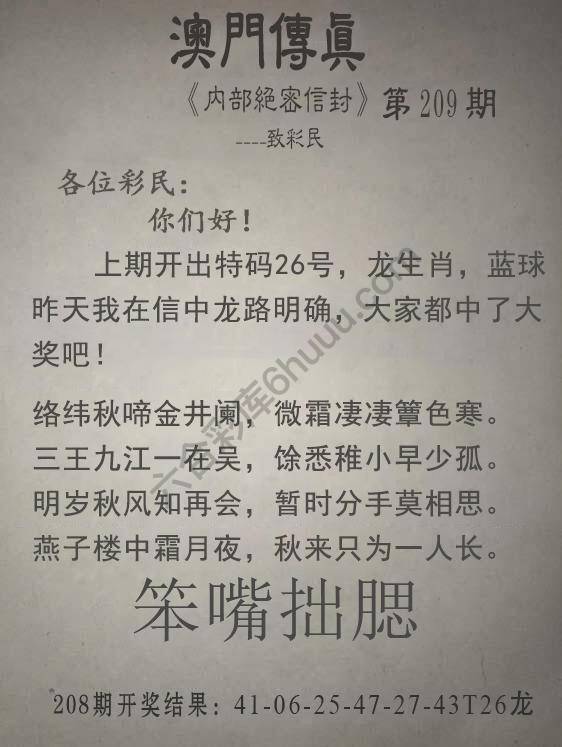 澳門傳眞
《内部絕密信封》第209期
----致彩民
各位彩民：
你们好！
上期开出特码26号，龙生肖，蓝球
昨天我在信中龙路明确，大家都中了大
奖吧！
络纬秋啼金井阑，微霜凄凄簟色寒。
三王九江一在吴，馀悉稚小早少孤。
明岁秋风知再会，暂时分手莫相思。
燕子楼中霜月夜，秋来只为一人长。
笨嘴拙腮
208期开奖结果：41-06-25-47-27-43T26龙
六合彩库6huuu.com